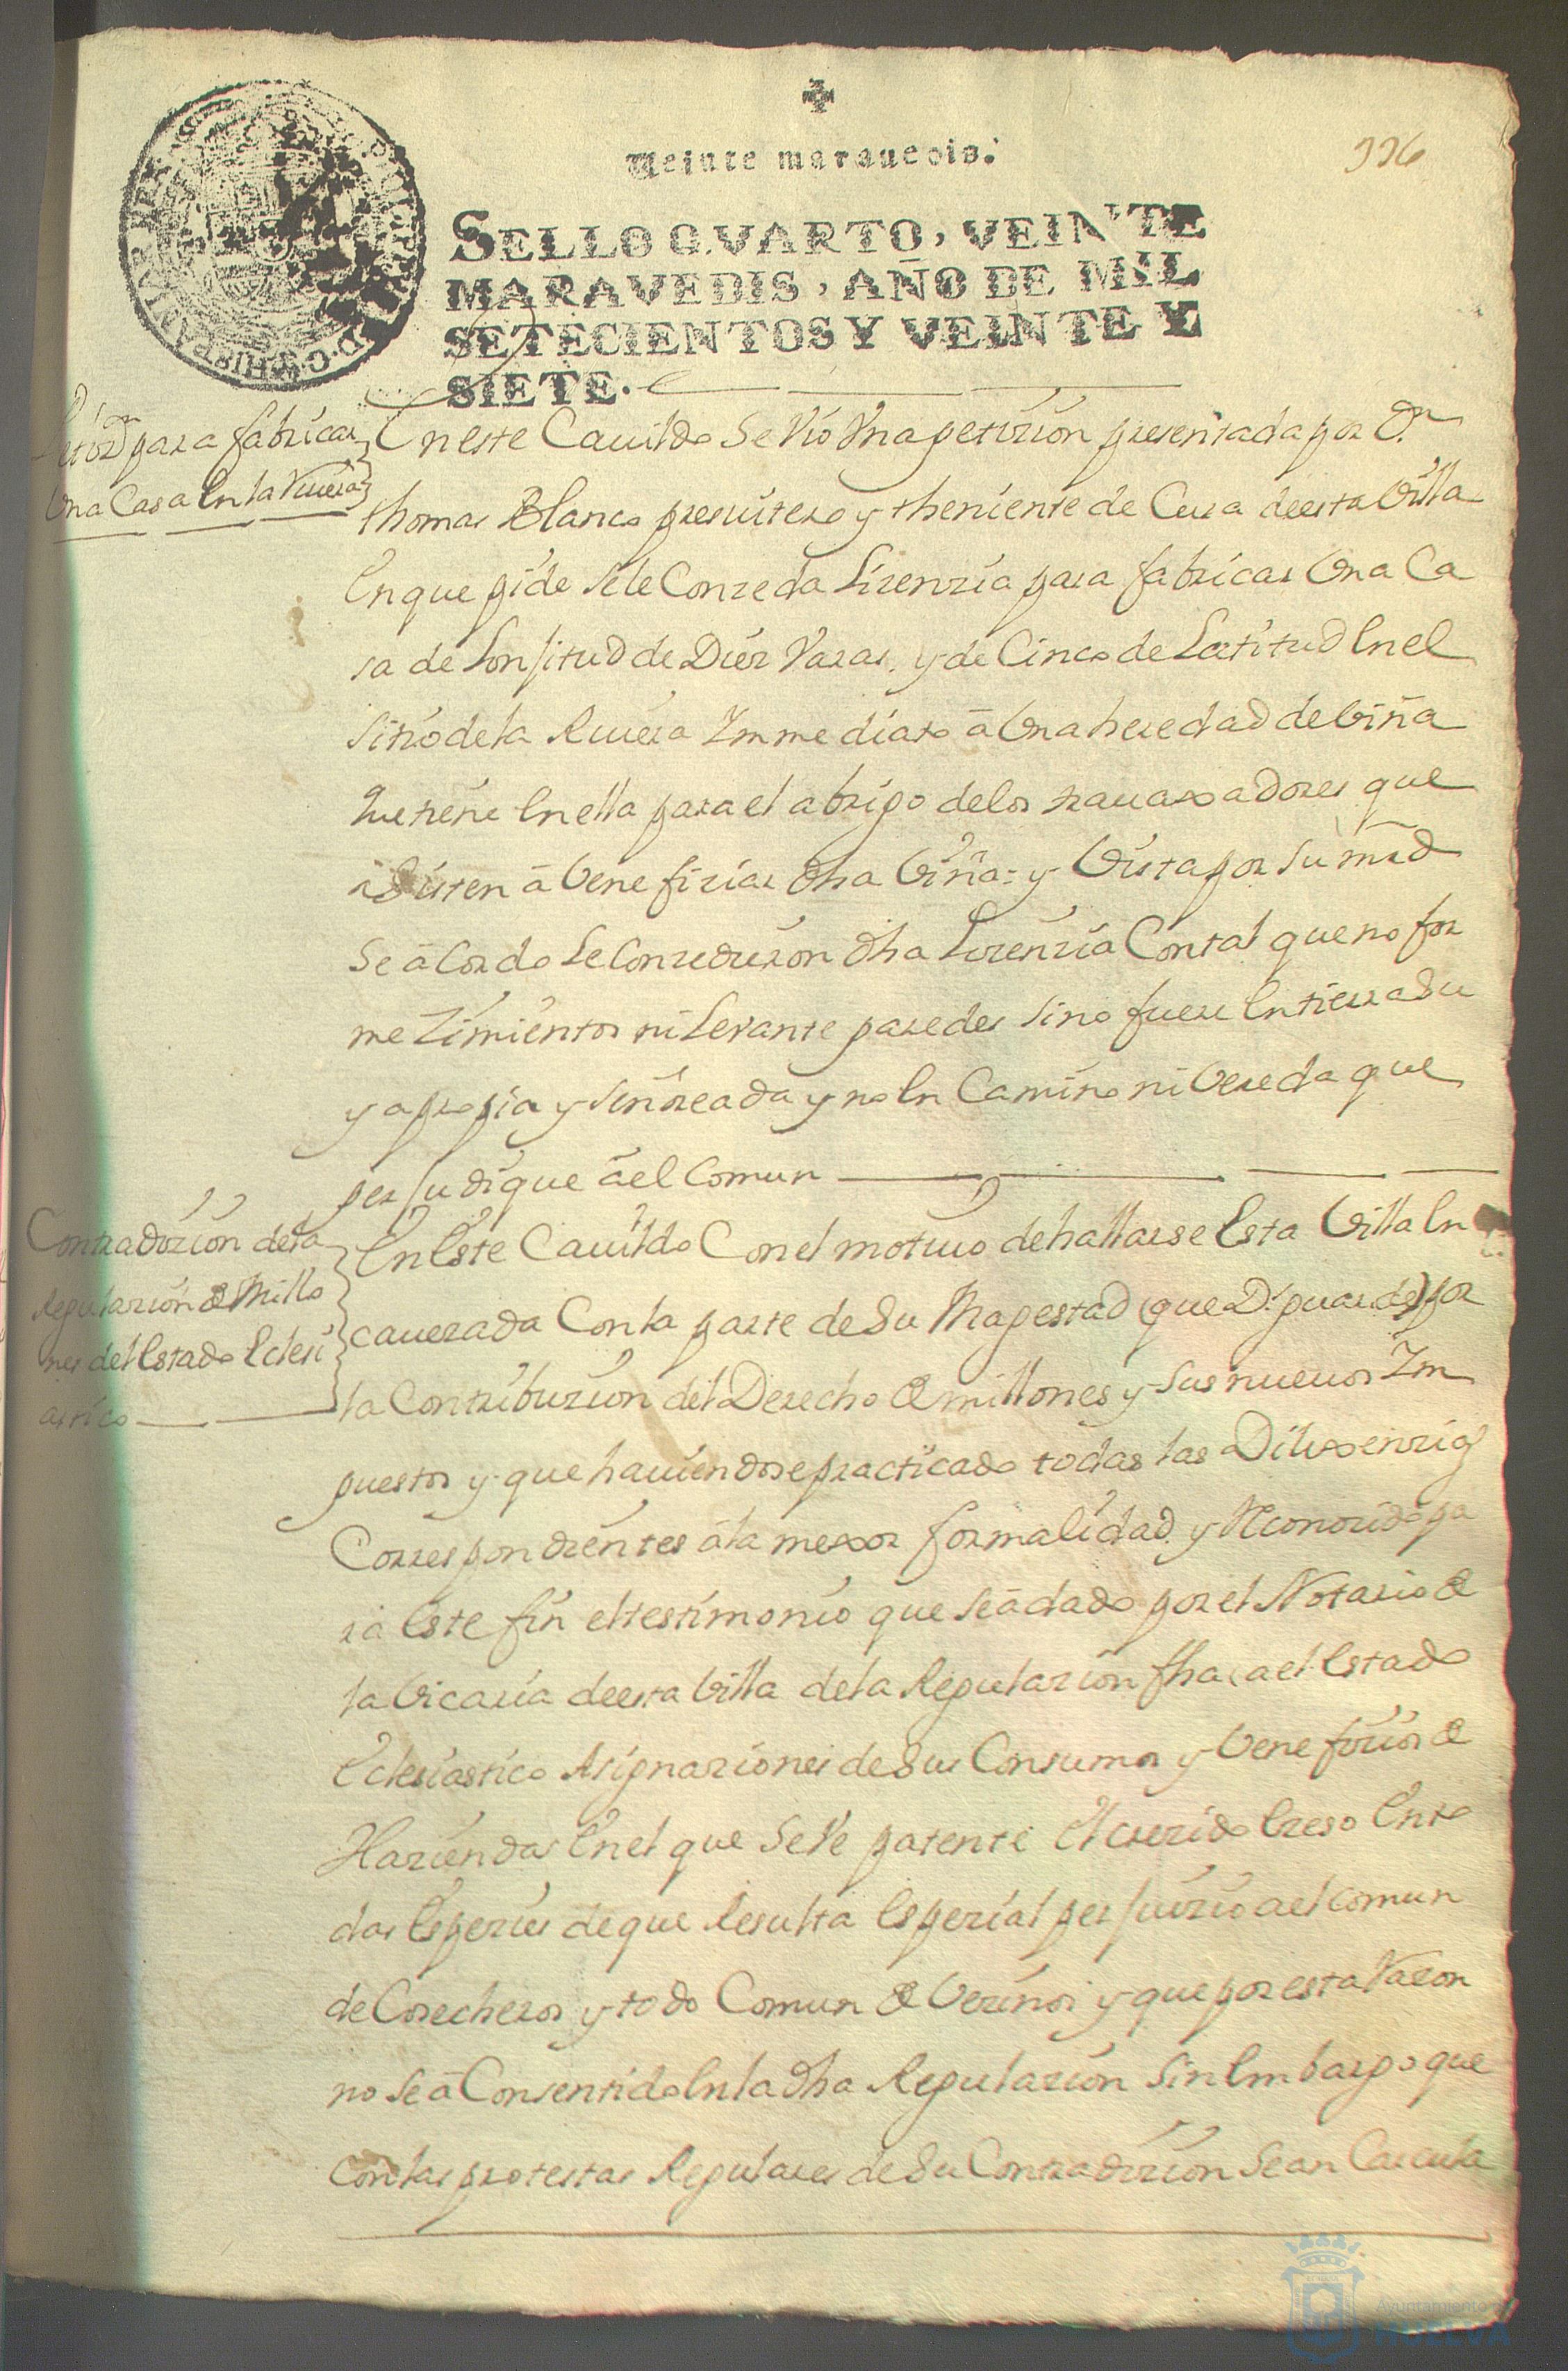 Veinte maravedis.
336
SELLO QVARTO, VEINTE
MARAVEDIS, AÑO DE MIL
SETECIENTOS Y VEINTE Y
SIETE.
petizon para fabricar
Una Casa en la Riuera
En este Cauildo Se Vio Vna petizion presentada por Dn
thomas Blanco presuitero y theniente de Cura deesta Villa
En que pide Sele Conzeda Lizenzia para fabricar Una Ca
sa de Lonjitud de Diez Varas, y de Cinco de Latitud En el
Sitio de la Riuera Immediato á Una heredad de Viña
que tiene En ella para el abrigo delos trauaxadores que
asisten á Venefiziar dha Viña = y Vista por Su mrd
Se ácordo Le Conzedieron dha Lizenzia Con tal que no for
me Zimientos ni Levante paredes Sino fuere En tierra Su
ya propia y Señoreada y no En Camino ni Vereda que
perjudique áel Comun
Contradizion dela
Regulazion de Millo
nes del Estado Eclesi
astico
En Este Cauildo Con el motiuo de hallarse Esta Villa En
cauezada Con la parte de Su Magestad (que Ds. guarde) por
la Contribuzion del Derecho de millones y Sus nueuos Im
puestos y que hauiendose practicado todas las Dilixenzias
Correspondientes á la mexor formalidad y Reconozido pa
ra Este fin el testimonio que Se á dado por el Notario de
la Vicaria deesta Villa dela Regulazion fha a el Estado
Eclesiastico Asignaziones de Sus Consumos y Venefizios de
Haziendas En el que Se Ve patente El crezido Exeso En to
das Espezies de que Resulta Espezial perjuizio a el comun
de Cosecheros y todo Comun de Vezinos y que por esta Razon
no Se á Consentido En la dha Regulazion Sin Embargo que
con las protestas Regulares de Su Contradizion Sean Carcula
Ayuntamiento de
HUELVA